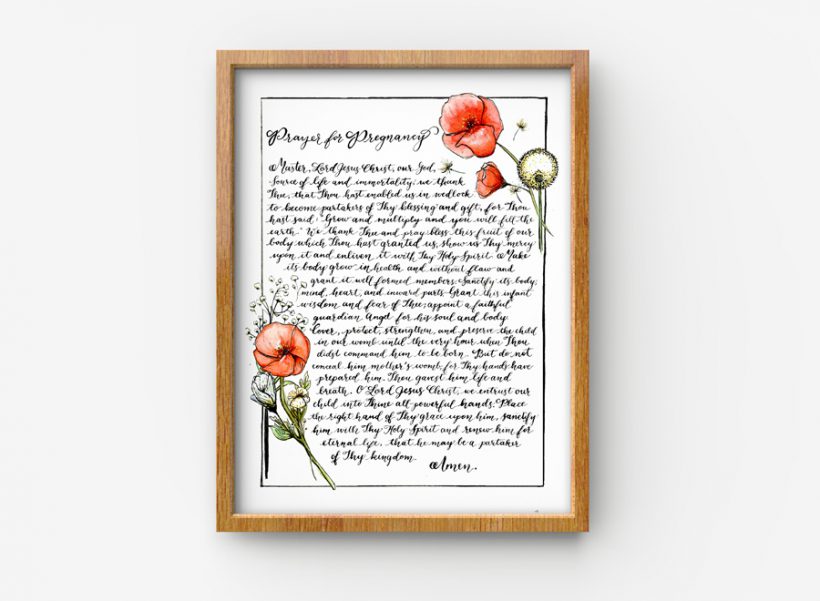 Prayer for Pregnancy
Master, Lord Jesus Christ, our God,
Source of life and immortality; we thank
Thee, that Thou hast enabled us in wedlock
to become partakers of Thy blessing and gift, for Thou
hast said: "Grow and multiply and you will fill the
earth." We thank Thee and pray bless this fruit of our
body which Thou hast granted us, show us Thy mercy
upon it and enliven it with Thy Holy Spirit. Make
its body grow in health and without flaw and
grant it well formed members. Sanctify its body,
mind, heart, and inward parts. Grant this infant
wisdom and fear of Thee; appoint a faithful
guardian Angel for his soul and body.
Cover, protect, strengthen, and preserve the child
in our womb until the very hour when Thou
didst command him to be born. But do not
conceal him mother's womb, for Thy hands have
prepared him. Thou gavest him life and
breath. O Lord Jesus Christ, we entrust our
child into Thine all powerful hands. Place
the right hand of Thy grace upon him, sanctify
him with Thy Holy Spirit and renew him for
eternal life, that he may be a partaker
of Thy kingdom
Amen.